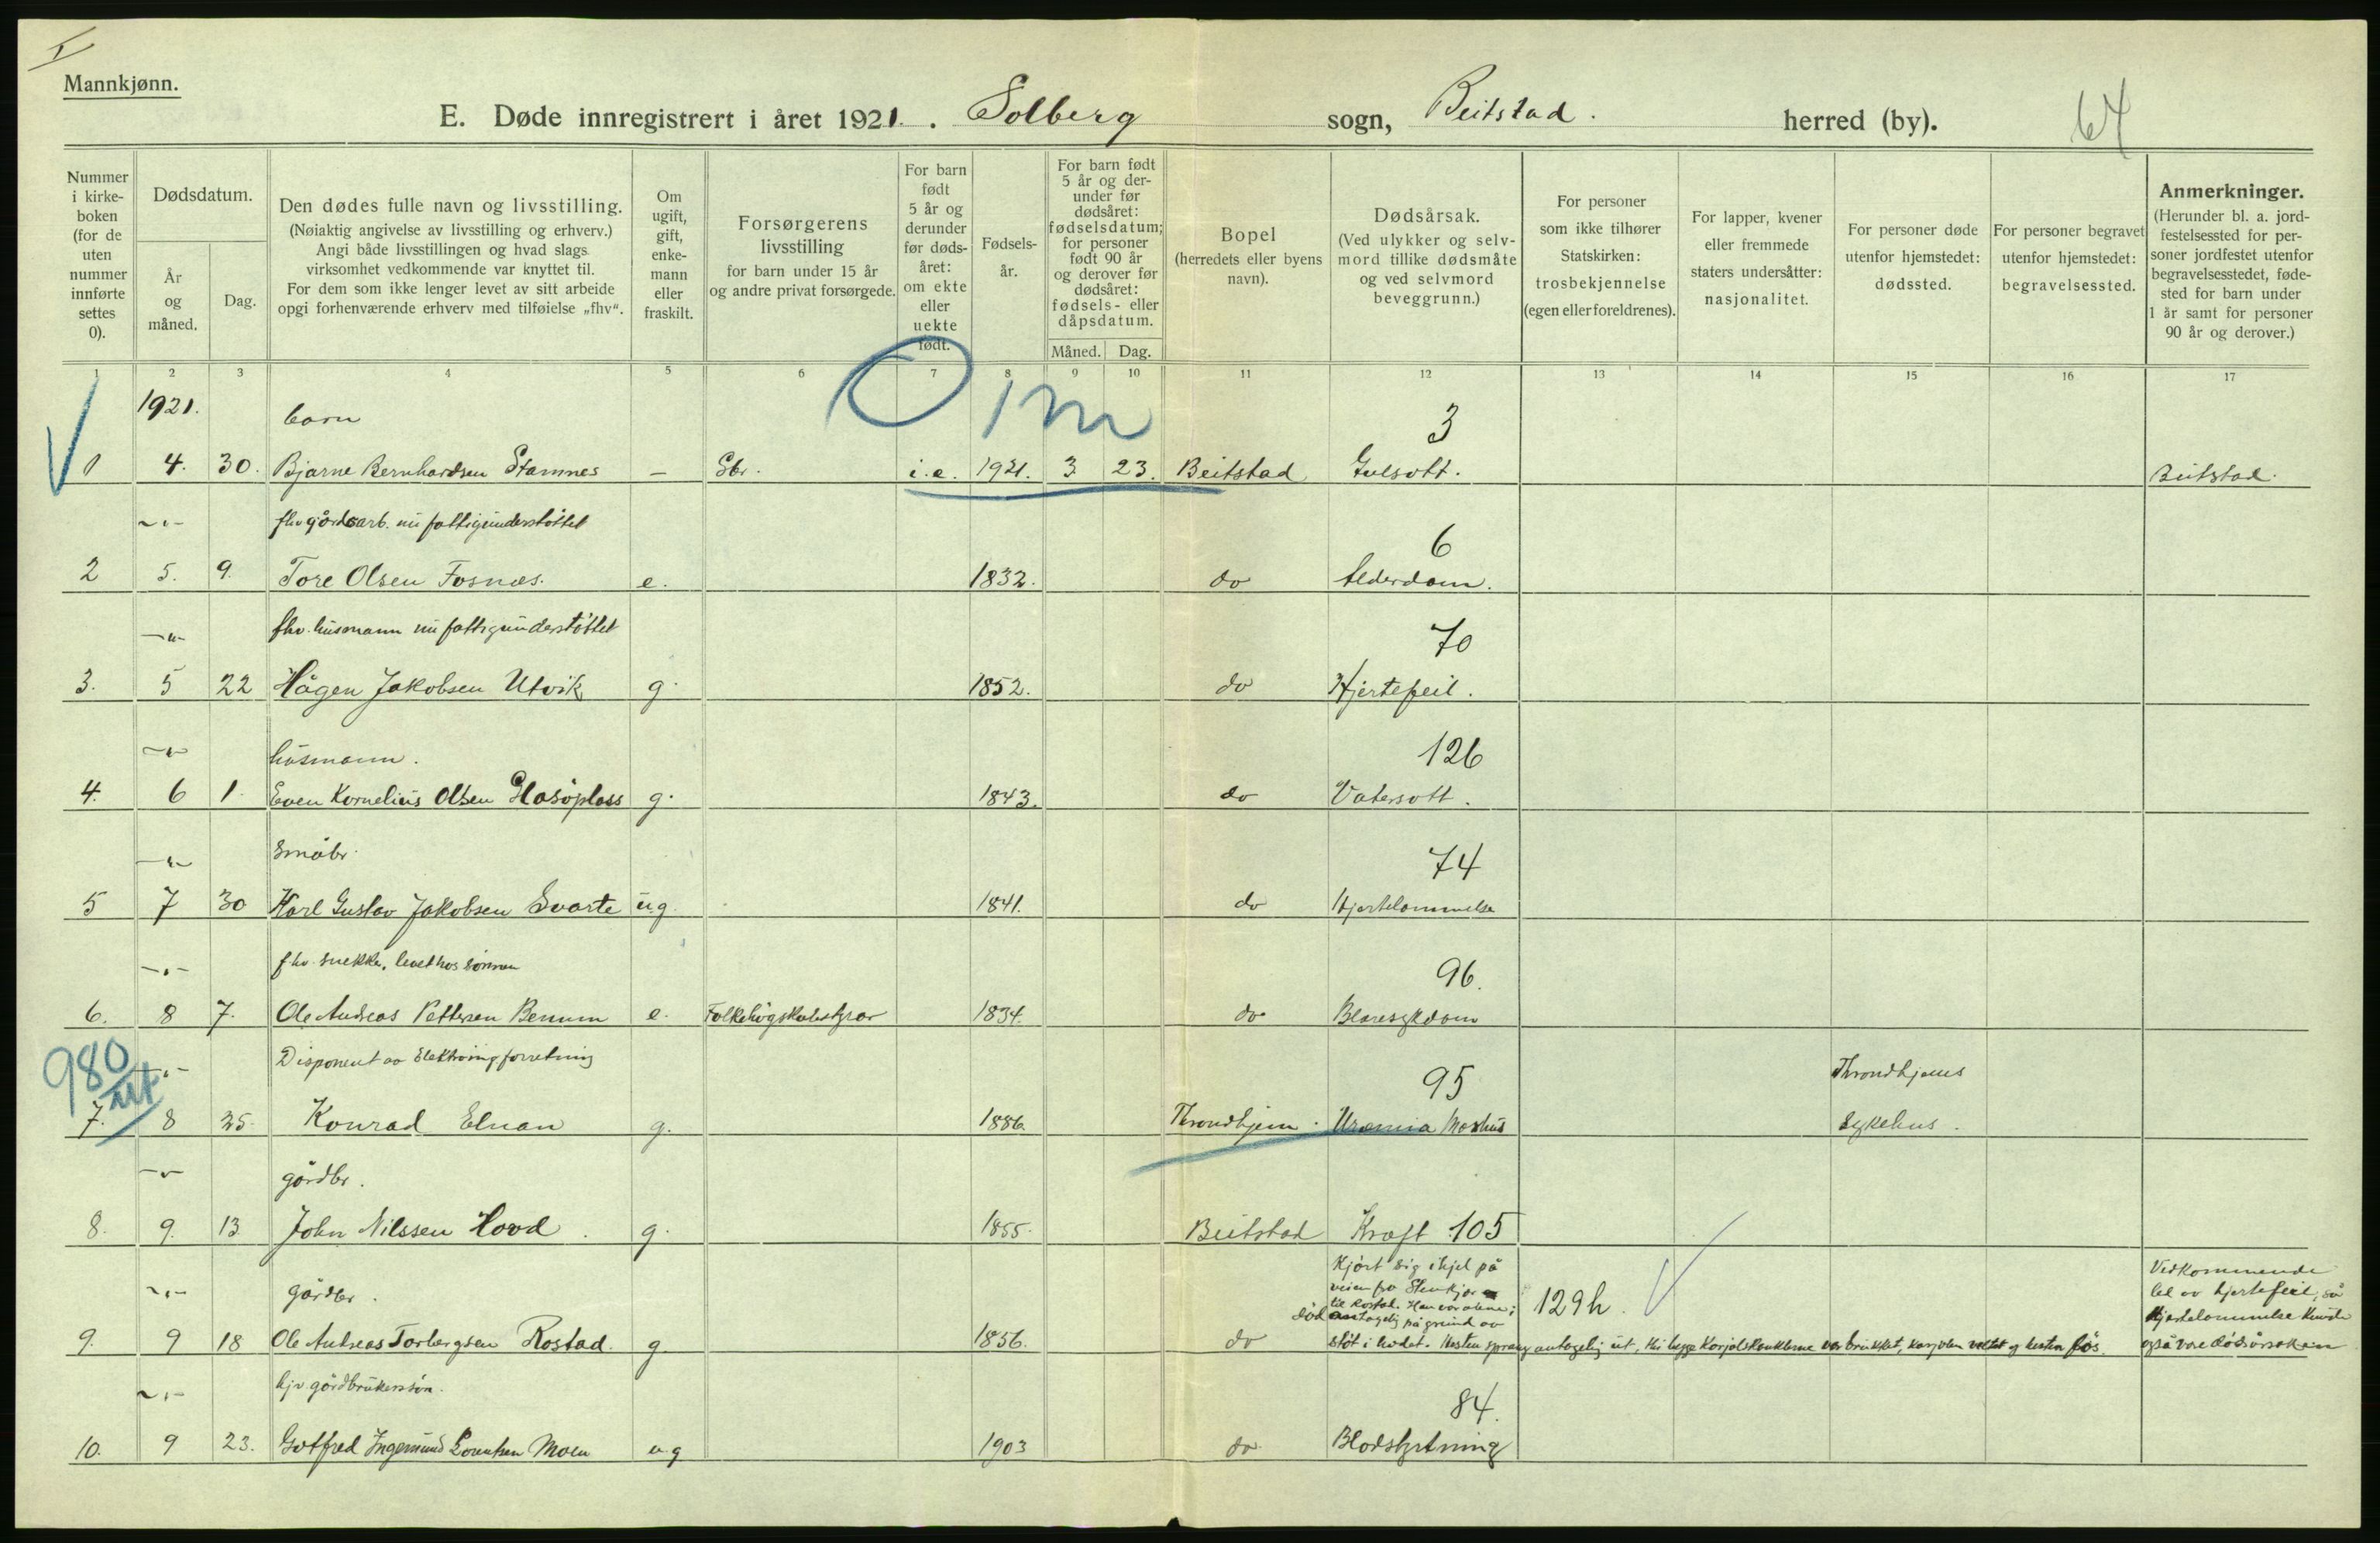 I
Mannkjønn.
E. Døde innregistrert i året 1921. Solberg sogn, Beitstad. herred (by). 64
Nummer i kirke-boken (for de uten nummer innførte settes 0).
Dødsdatum.
År og måned.
Dag.
Den dødes fulle navn og livsstilling.
(Nøiaktig angivelse av livsstilling og erhverv.)
Angi både livsstillingen og hvad slags
virksomhet vedkommende var knyttet til.
For dem som ikke lenger levet av sitt arbeide
opgi forhenværende erhverv med tilføielse „fhv“.
Om ugift, gift, enke-mann eller fraskilt.
Forsørgerens livsstilling
for barn under 15 år
og andre privat forsørgede.
For barn født 5 år og derunder før døds-året: om ekte eller uekte født.
Fødsels-år.
For barn født 5 år og der-under før dødsåret: fødselsdatum; for personer født 90 år og derover før dødsåret: fødsels- eller dåpsdatum.
Måned. Dag.
Bopel
(herredets eller byens navn).
Dødsårsak.
(Ved ulykker og selv-mord tillike dødsmåte og ved selvmord beveggrunn.)
For personer som ikke tilhører Statskirken: trosbekjennelse (egen eller foreldrenes).
For lapper, kvener eller fremmede staters undersåtter: nasjonalitet.
For personer døde utenfor hjemstedet: dødssted.
For personer begravet utenfor hjemstedet: begravelsessted.
Anmerkninger.
(Herunder bl. a. jord-festelsessted for per-soner jordfestet utenfor begravelsesstedet, føde-sted for barn under 1 år samt for personer 90 år og derover.)
1 2 3 4 5 6 7 8 9 10 11 12 13 14 15 16 17
1921. barn 0 1 m 3
1 4. 30. Bjarne Bernhardsen Stamnes — Gbr. i.e. 1921. 3 23. Beitstad Gulsott. Beitstad.
-"- fhv gårdsarb. nu fattigunderstøttet 6
2 5. 9. Tore Olsen Fosnæs. e. 1832. do Alderdom.
-"- fhv. husmann nu fattigunderstøttet 70
3. 5 22 Hågen Jakobsen Utvik g. 1852. do Hjertefeil.
-"- husmann. 126
4. 6 1. Even Kornelius Olsen g. 1843. do Vatersott.
-"- Småbr. 74
5 7 30 Karl Gustav Jakobsen Svarte ug. 1841. do Hjertelammelse
-"- fhv. snekker, levet hos sønnen 96.
6. 8 7. Ole Andreas Pettersen Benum e. Folkehøgskolestyrer 1834. do Blæresykdom
980 -"- Disponent av forretning 95 Throndhjems
7. 8 25. Konrad Elnan g. 1886. Throndhjem. Uræmia sykehus.
-"- gårdbr.
8. 9. 13 John Nilssen Hovd. g. 1855. Beitstad Kræft 105
-"- gårdbr. Kjørt sig ihjel på
veien fra Stenkjær Vedkommende
til Rostad. Han var alene; 129h. led av hjertefeil, så
død antagelig på grund av hjertelammelse kunde
9. 9 18 Ole Andreas Torbergsen Rostad. g. 1856. do støt i hodet. Hesten sprang antagelig ut, begge var brukket, karjolen veltet og hesten løs. også være dødsårsaken
-"- hjv. gårdbrukersøn. 84.
10. 9 23. Gotfred Ingemund Lorentsen Moen u.g 1903 do Blodstyrtning